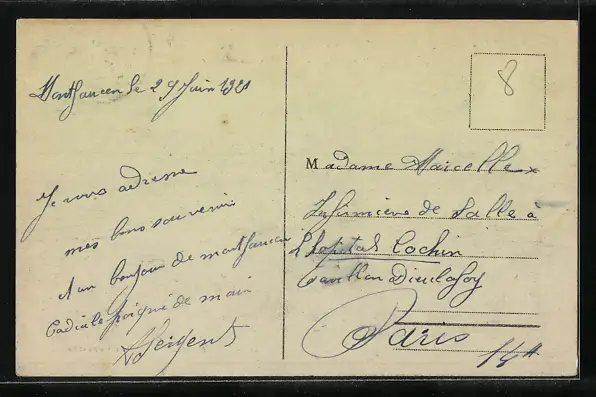 Montfaucon le 29 Juin 1921
Je vous adresse
mes bons souvenirs
et un bonjour de montfaucon
Cadiale poigné de main
Sergent
8
Madame Marcelle
Infirmière de Salle à
L'hopital Cochin
Pavillon Dieulafoy
Paris
14e